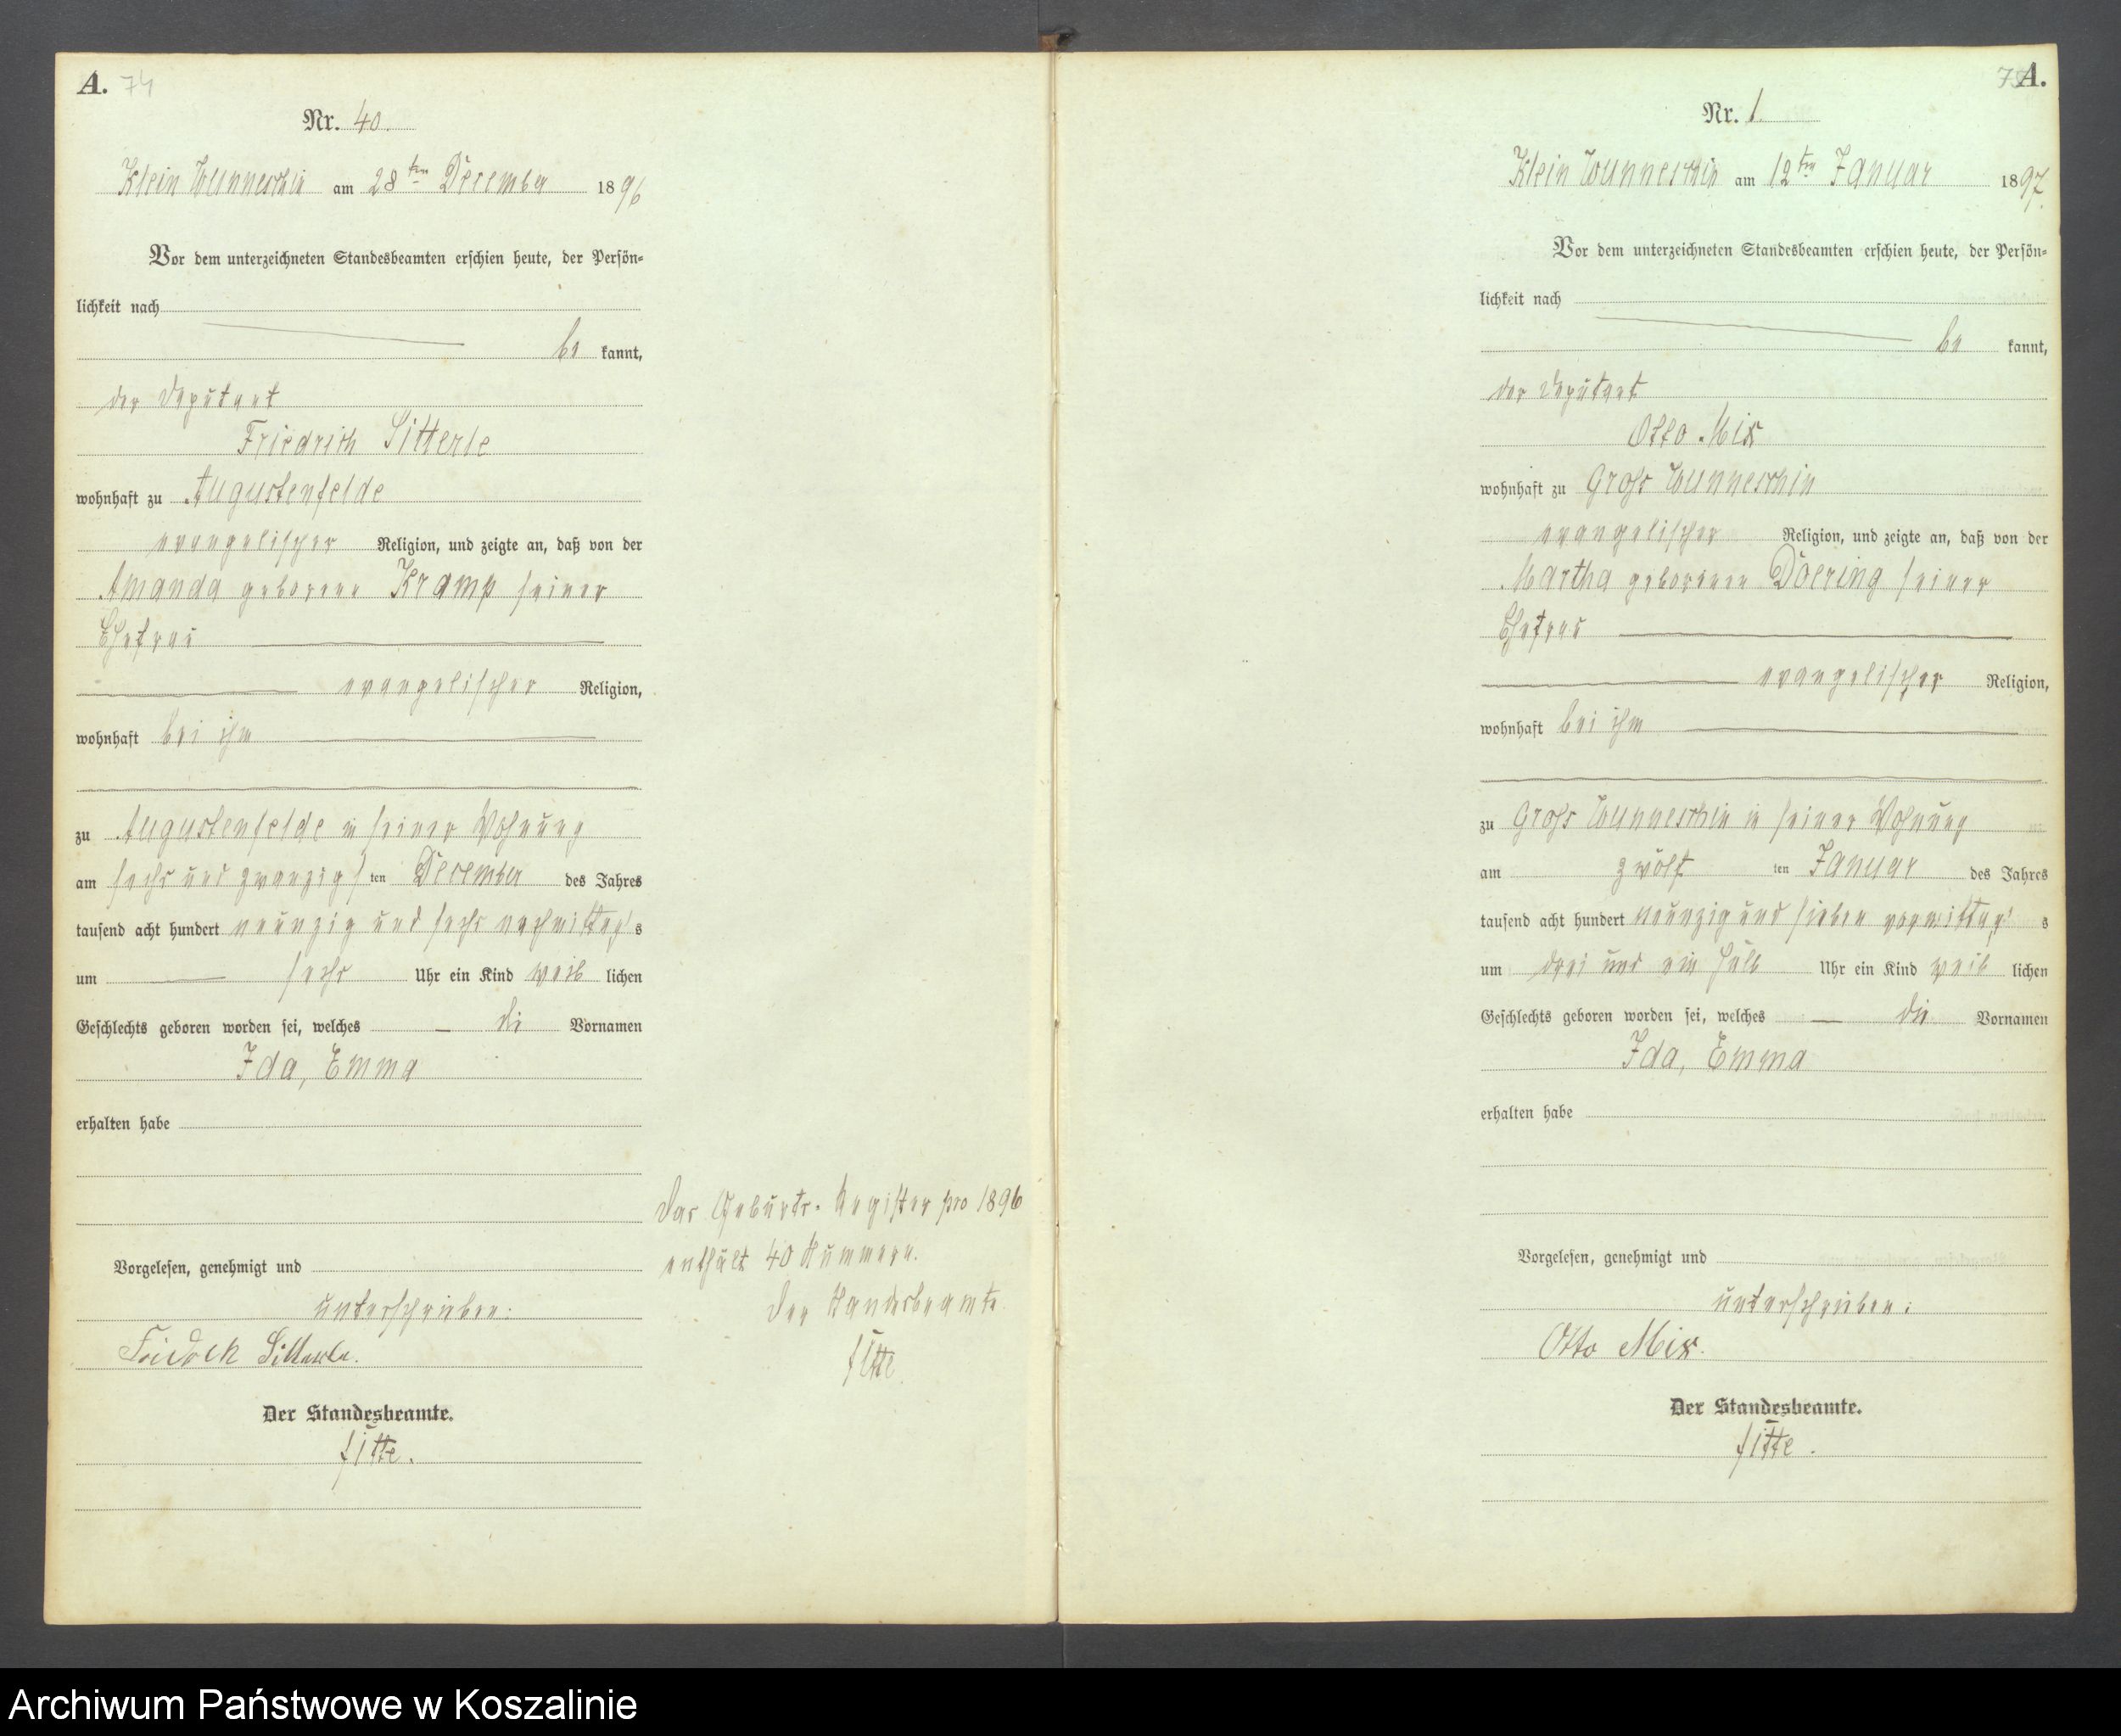 A. 74
Nr. 40.
Klein Wunneschin am 28ten December 1896
Vor dem unterzeichneten Standesbeamten erschien heute, der Persön-
lichkeit nach
be kannt,
der Deputant
Friedrich Sitterle
wohnhaft zu Augustenfelde
evangelischer Religion, und zeigte an, daß von der
Amanda geborene Kramp seiner
Ehefrau
evangelischer Religion,
wohnhaft bei ihm
zu Augustenfelde in seiner Wohnung
am sechs und zwanzigs ten December des Jahres
tausend acht hundert neunzig und sechs nachmittag s
um sechs Uhr ein Kind weib lichen
Geschlechts geboren worden sei, welches die Vornamen
Ida, Emma
erhalten habe
Vorgelesen, genehmigt und
unterschrieben:
Friedrich Sitterle.
Der Standesbeamte.
Das Geburts-Register pro 1896
enthält 40 Nummern.
Der Standesbeamte
A.
Nr. 1.
Klein Wunneschin am 12ten Januar 1897.
Vor dem unterzeichneten Standesbeamten erschien heute, der Persön-
lichkeit nach
be kannt,
der Deputant
Otto Mix
wohnhaft zu Gross Wunneschin
evangelischer Religion, und zeigte an, daß von der
Martha geborenen Doering seiner
Ehefrau
evangelischer Religion,
wohnhaft bei ihm
zu Gross Wunneschin in seiner Wohnung
am zwölf ten Januar des Jahres
tausend acht hundert neunzig und sieben vormittag s
um drei und ein halb Uhr ein Kind weib lichen
Geschlechts geboren worden sei, welches die Vornamen
Ida, Emma
erhalten habe
Vorgelesen, genehmigt und
unterschrieben:
Otto Mix.
Der Standesbeamte.
Archiwum Państwowe w Koszalinie